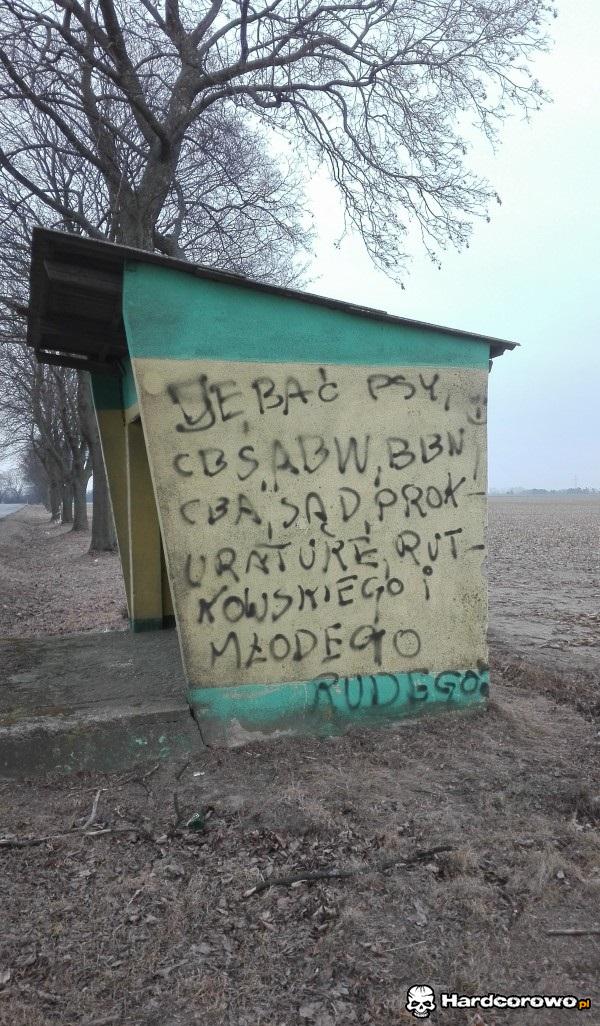 JEBAĆ PSY,
CBŚ, ABW, BBN,
CBA, SĄD, PROK-
URATURĘ, RUT-
KOWSKIEGO i
MŁODEGO
RUDEGO!
Hardcorowo.pl